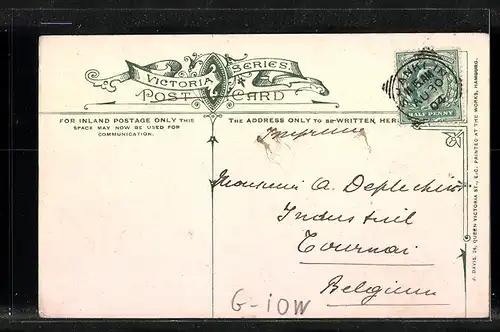 VICTORIA SERIES.
POST CARD
FOR INLAND POSTAGE ONLY THIS
SPACE MAY NOW BE USED FOR
COMMUNICATION.
THE ADDRESS ONLY TO BE WRITTEN HERE
HALF PENNY
Imprimé
Monsieur A. Deplechin
Industriel
Tournai
Belgium
G-IOW
J. DAVIS, 24, QUEEN VICTORIA ST., E.C. PRINTED AT THE WORKS, HAMBURG.